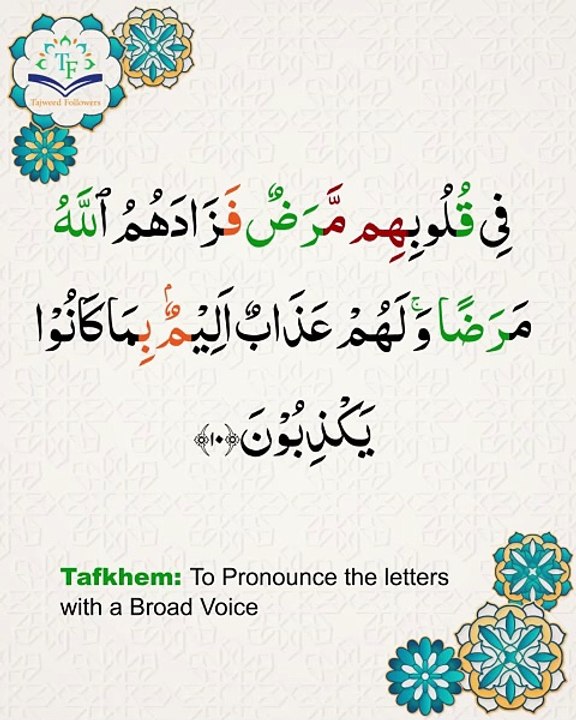 TF
Tajweed Followers
فِي قُلُوبِهِم مَّرَضٌ فَزَادَهُمُ ٱللَّهُ
مَرَضًا ۚ وَلَهُمْ عَذَابٌ اَلِيْمٌۢ بِمَا كَانُوْا
يَكْذِبُوْنَ ﴿١٠﴾
Tafkhem: To Pronounce the letters
with a Broad Voice